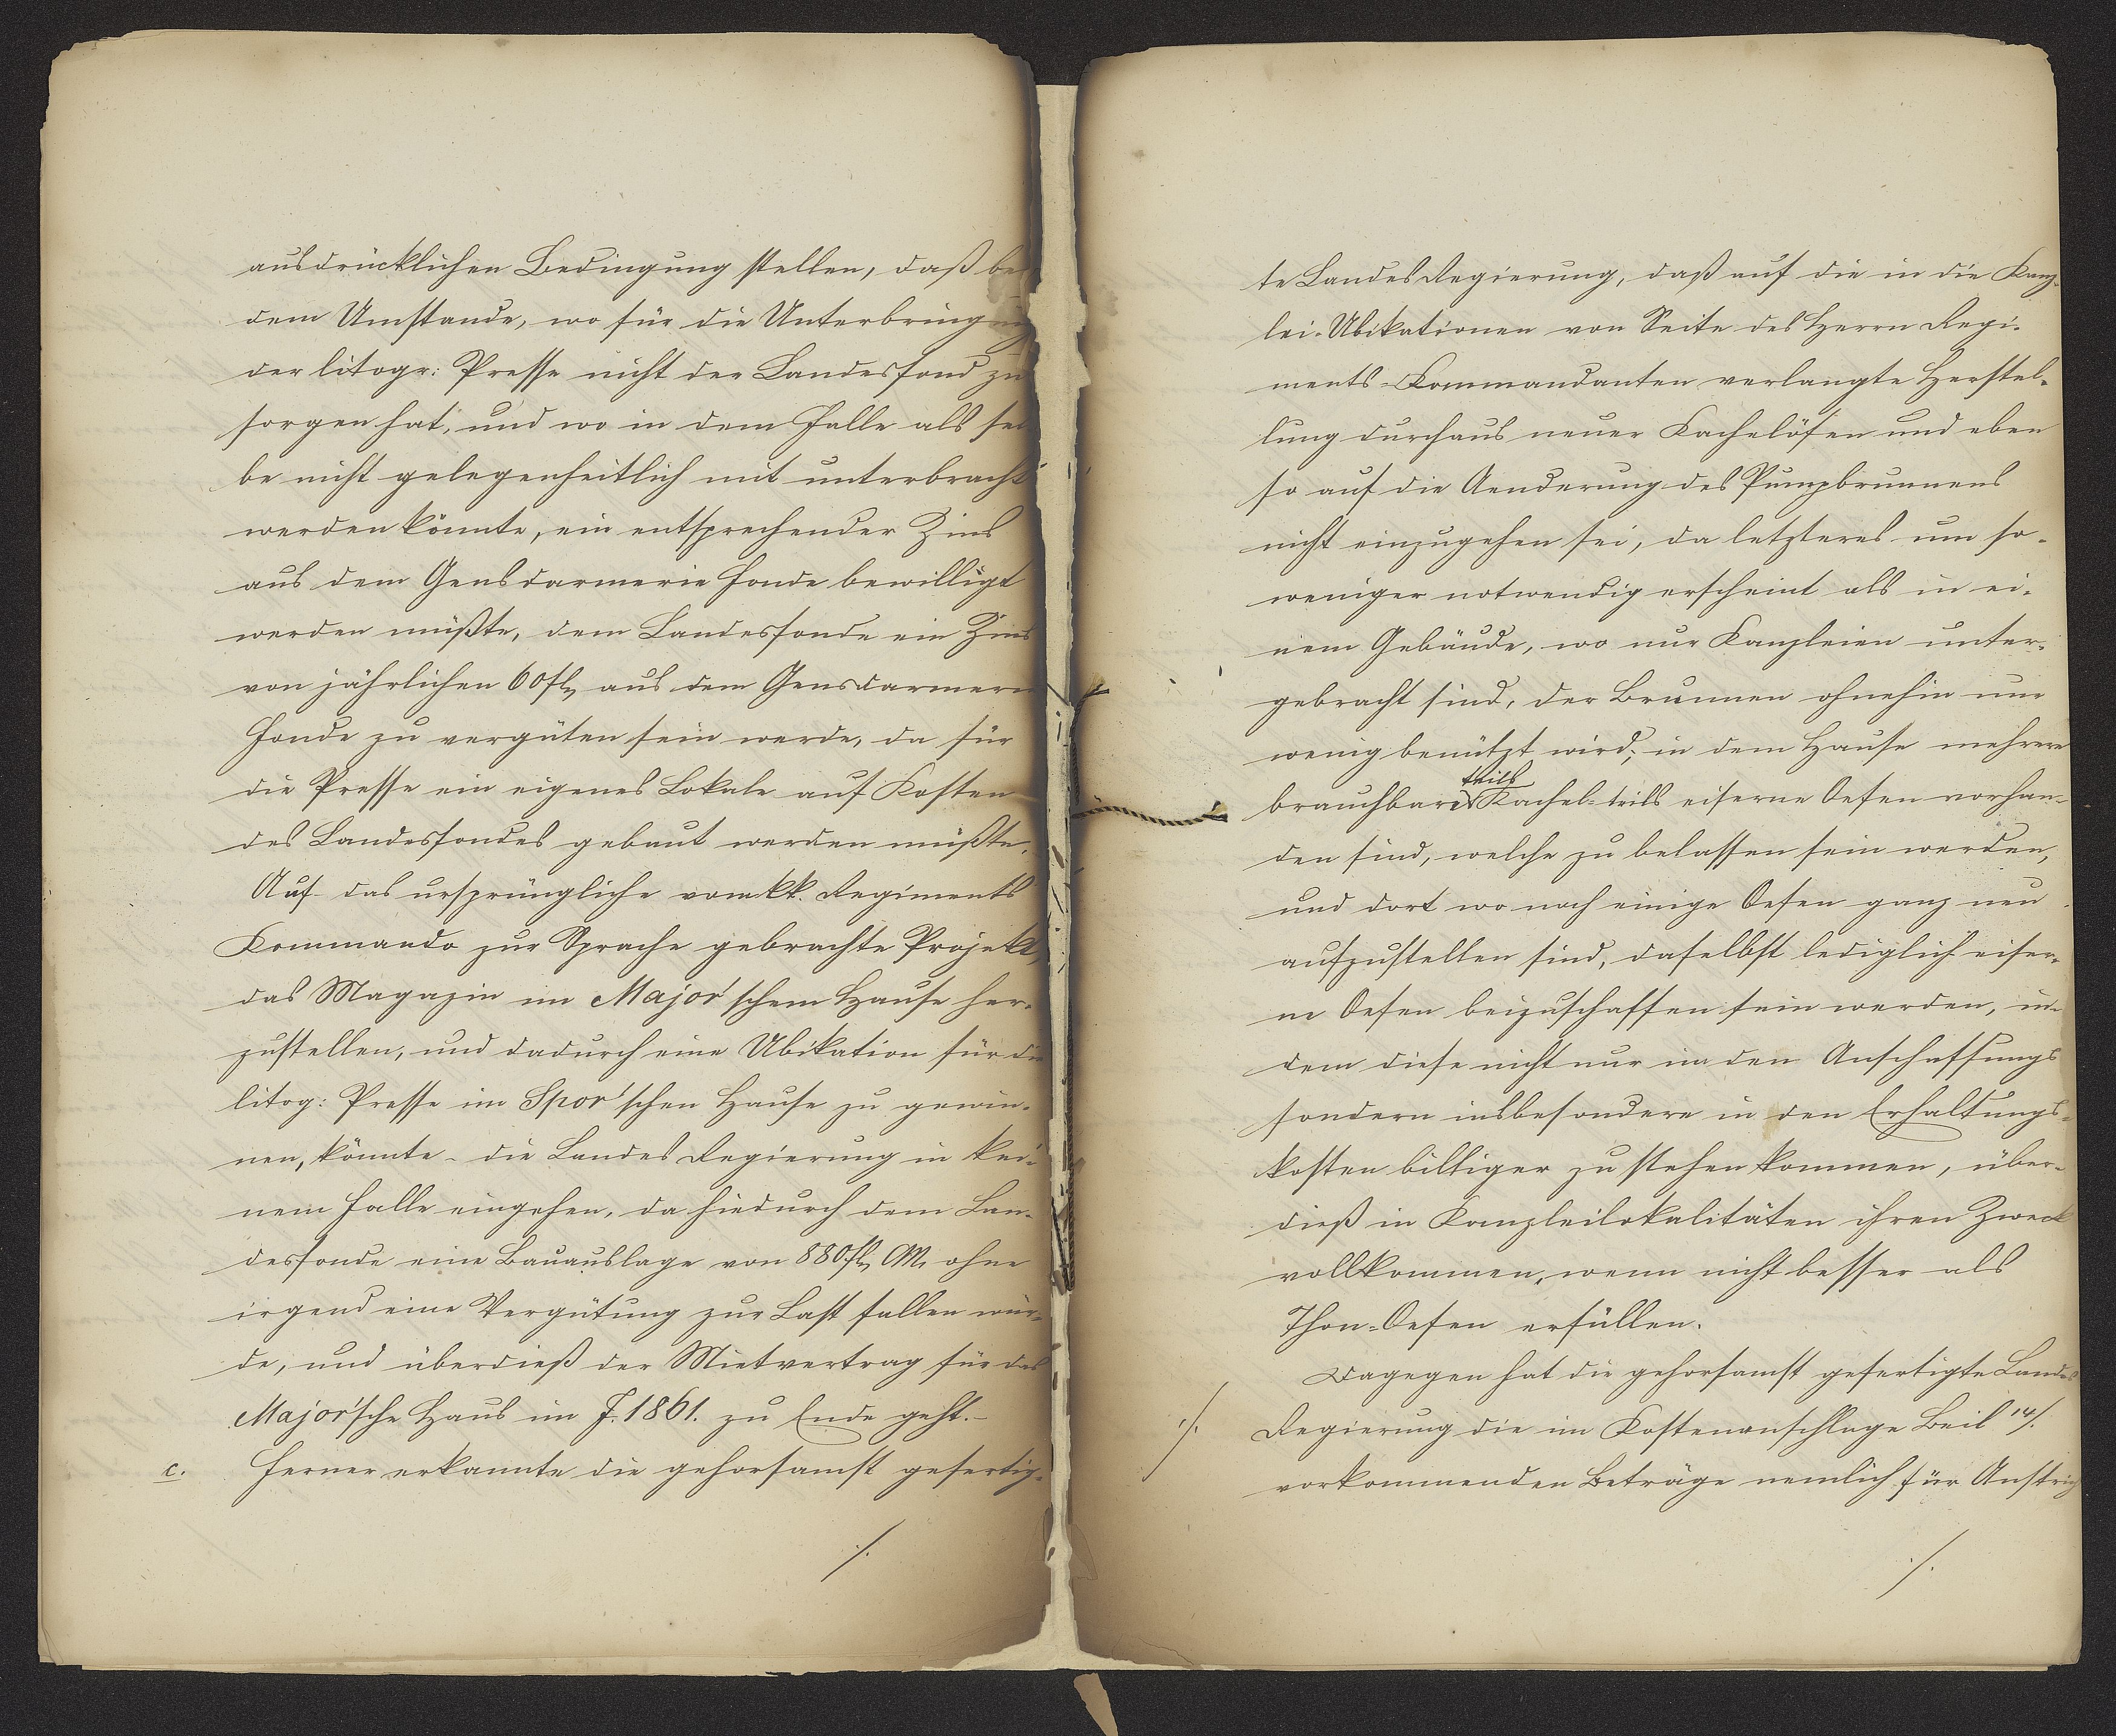 ausdrücklichen Bedingung stellen, daß bei
dem Umstande, wo für die Unterbringung
der litogr: Presse nicht der Landesfond zu
sorgen hat, und wo in dem Falle als sel
be nicht gelegenheitlich mit unterbracht
werden könnte, ein entsprechender Zins
aus dem Gensdarmerie Fonde bewilligt
werden müßte, dem Landesfonde ein Zins
von jährlichen 60 fl, aus dem Gensdarmerie
Fonde zu vergüten sein werde, da für
die Presse ein eigenes Lokale auf Kosten
des Landesfondes gebaut werden müßte.
Auf das ursprüngliche vom kk. Regiments
Kommando zur Sprache gebrachte Projekt,
das Magazin im Major'schem Hause her-
zustellen, und dadurch eine Ubikation für die
litog: Presse im Spor'schen Hause zu gewin-
nen, könnte die Landes Regierung in kei-
nem Falle eingehen, da hiedurch dem Lan-
desfonde eine Bauauslage von 880 fl, CM. ohne
irgend eine Vergütung zur Last fallen wür-
de, und überdieß der Mietvertrag für das
Major'sche Haus im J. 1861. zu Ende geht.-
c. Ferner erkannte die gehorsamst gefertig-
./.
te Landes Regierung, daß auf die in die Kanz-
lei-Ubikationen von Seite des Herrn Regi-
ments-Kommandanten verlangte Herstel-
lung durchaus neuer Kachelöfen und eben
so auf die Aenderung des Pumpbrunnens
nicht einzugehen sei, da letzteres um so-
weniger notwendig erscheint als in ei-
nem Gebäude, wo nur Kanzleien unter-
gebracht sind, der Brunnen ohnehin nur
wenig benützt wird; in dem Hause mehrere
teils
brauchbare Kachel-teils eiserne Oefen vorhan-
den sind, welche zu belassen sein werden,
und dort wo noch einige Oefen ganz neu
aufzustellen sind, daselbst lediglich eiser-
ne Oefen beizuschaffen sein werden, in-
dem diese nicht nur in den Anschaffungs
sondern insbesondere in den Erhaltungs-
kosten billiger zu stehen kommen, über-
dieß in Kanzleilokalitäten ihren Zweck
vollkommen, wenn nicht besser als
Thon-Oefen erfüllen.
Dagegen hat die gehorsamst gefertigte Landes
./. Regierung die im Kostenanschlage Beil 14/.
vorkommenden Beträge nemlich für Anstrich
./.